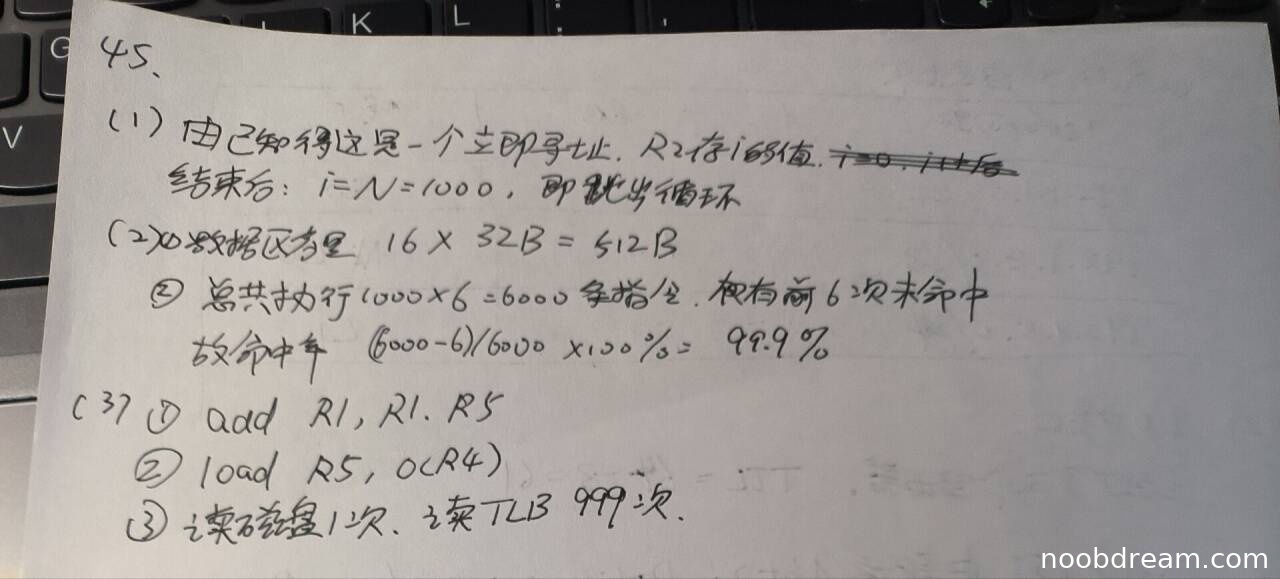 G
K
L
;
,
V
45、
(1) 由已知得这是一个立即寻址. R2存i的值.
结束后: i=N=1000, 即跳出循环
(2)① 数据区容量 16 × 32B = 512B
② 总共执行1000×6=6000条指令. 仅有前6次未命中
故命中率 (6000-6)/6000 ×100%= 99.9%
(3) ① add R1, R1. R5
② load R5, 0(R4)
③ 读磁盘1次、读TLB 999次.
noobdream.com